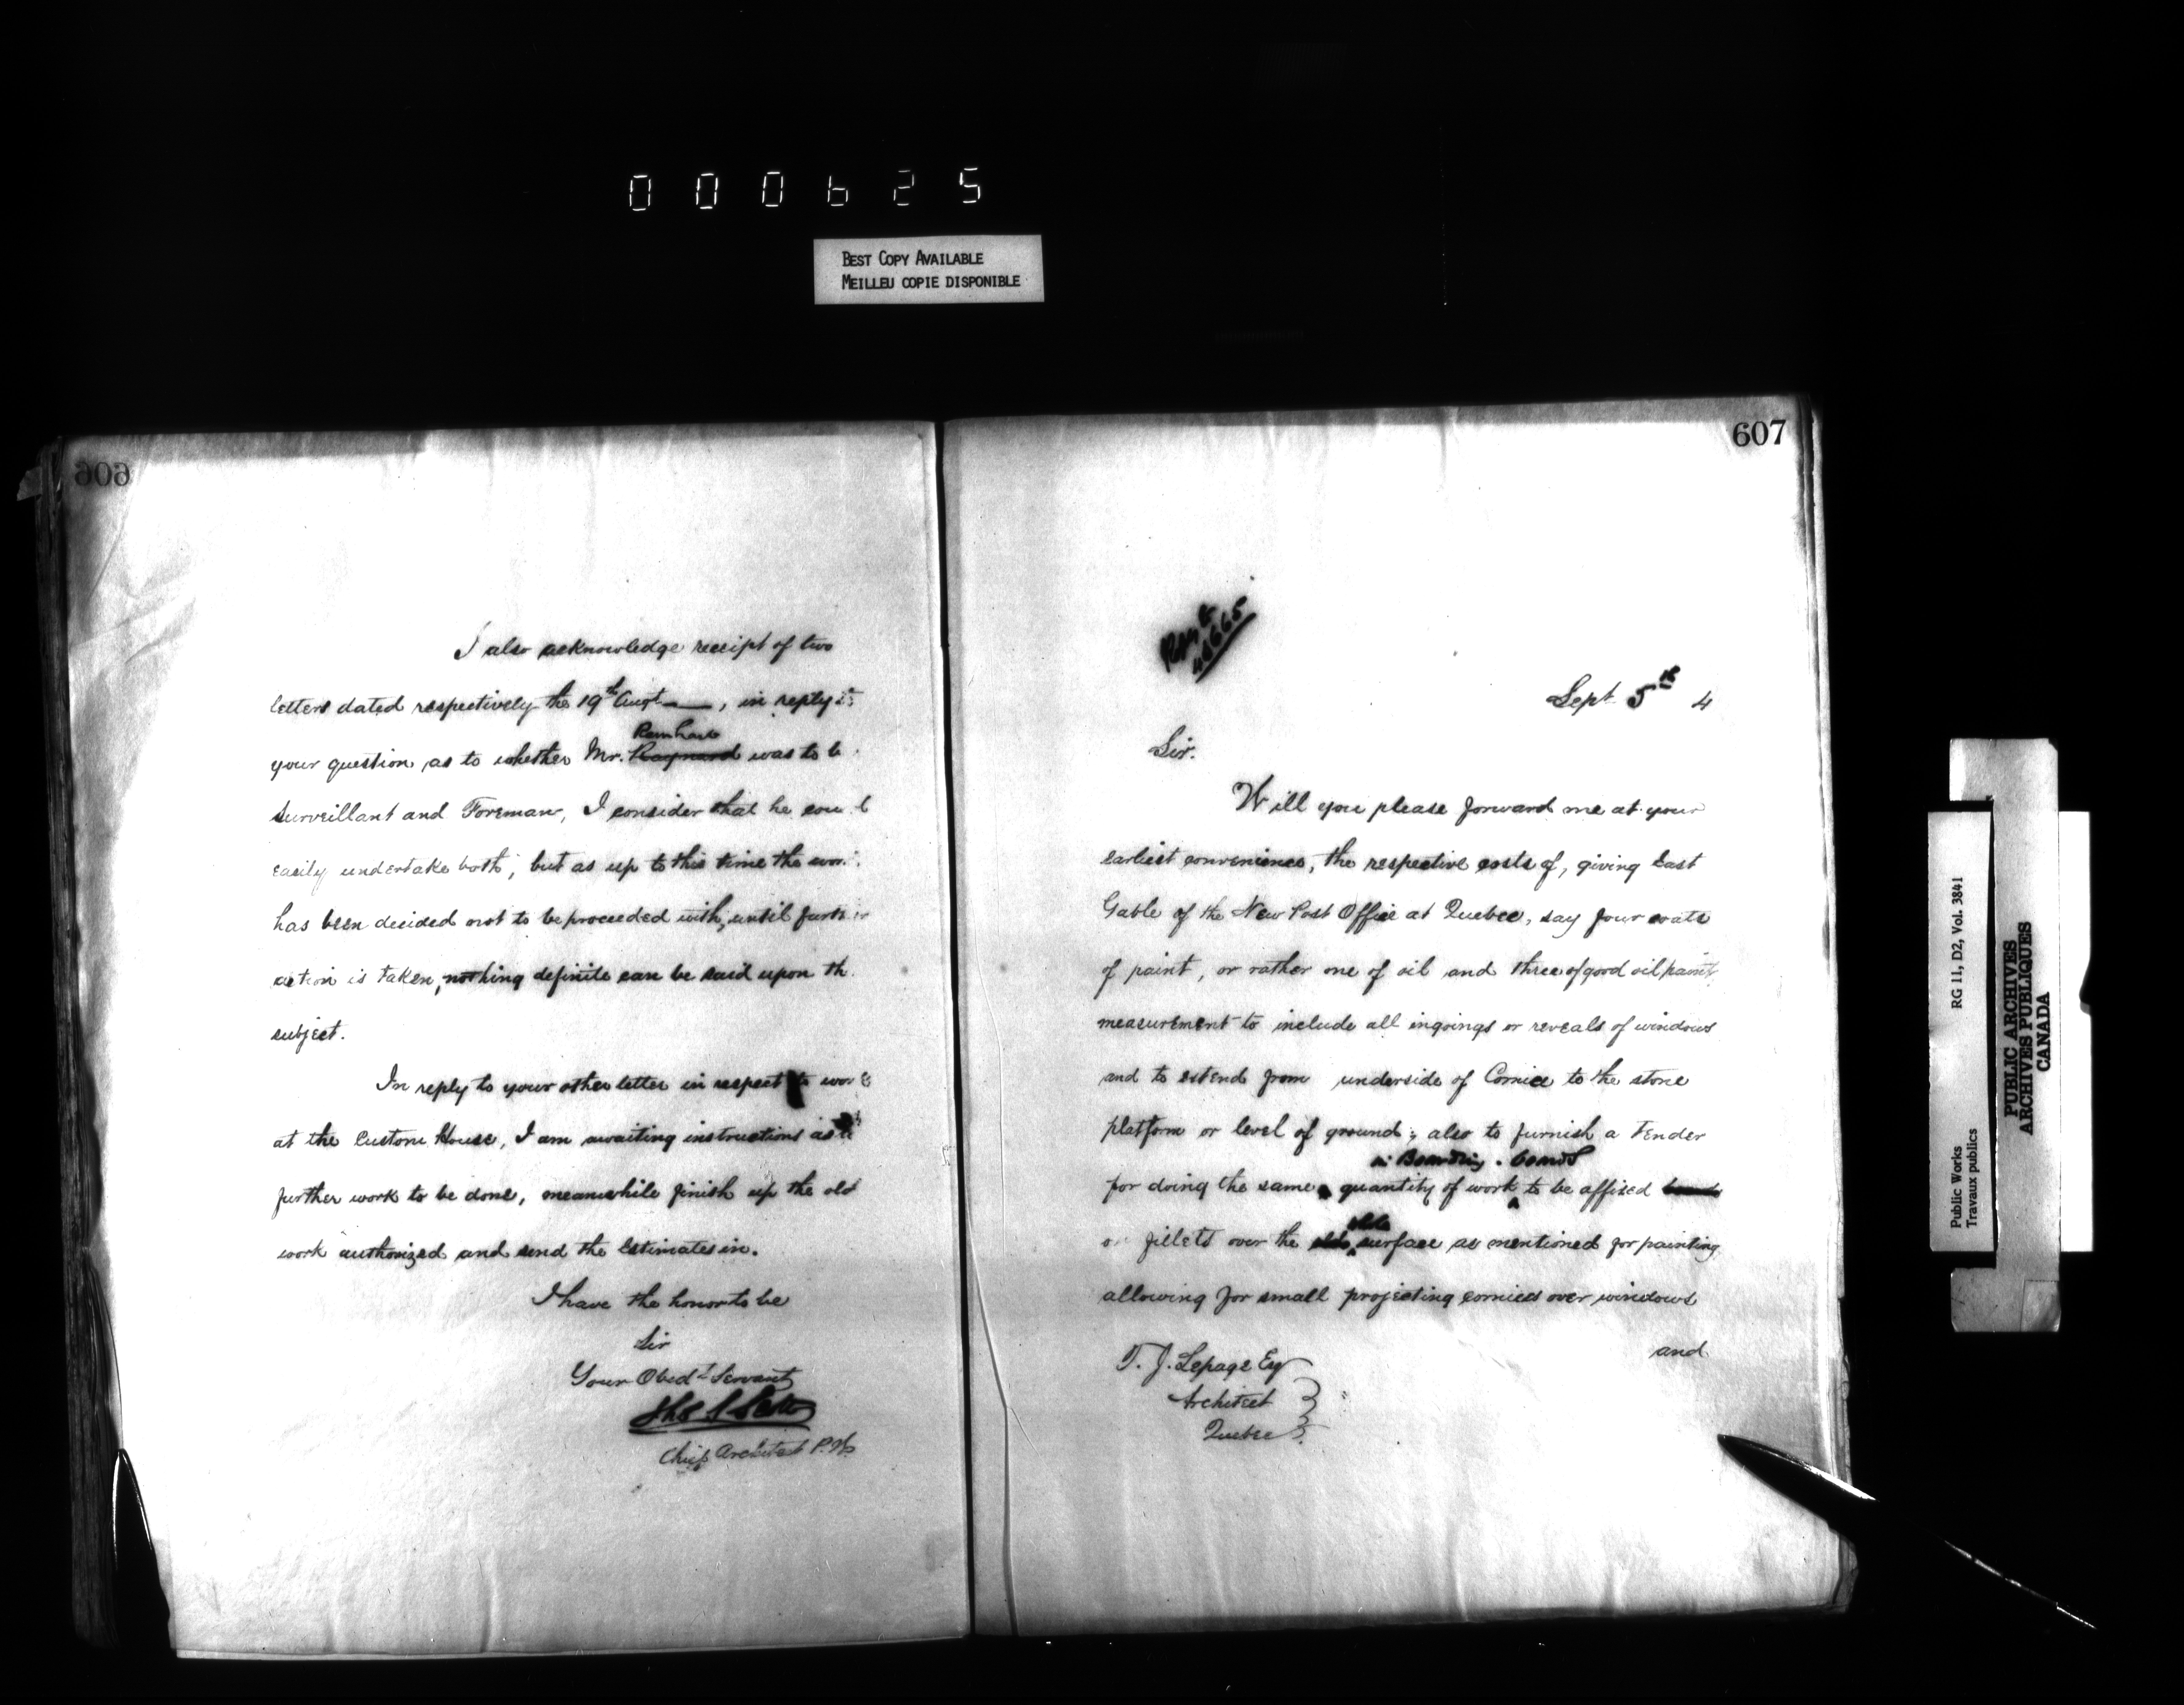 000625
BEST COPY AVAILABLE
MEILLEU COPIE DISPONIBLE
606
I also acknowledge receipt of two
letters dated respectively the 19th Augt ——, in reply to
Reinhard
your question as to whether Mr. Raynard was to b
Surveillant and Foreman, I consider that he coul
easily undertake both, but as up to this time the wor
has been decided not to be proceeded with, until furth r
action is taken, nothing definite can be said upon th
subject.
In reply to your other letter in respect to work
at the Custom House, I am awaiting instructions as to
further work to be done, meanwhile finish up the old
work authorized and send the Estimates in.
I have the honor to be
Sir
Your Obedt Servant
Thos S Scott
Chief Architect P.W.
607
46665
Sept 5th 4
Sir.
Will you please forward me at your
earliest convenience, the respective costs of, giving East
Gable of the New Post Office at Quebec, say four coats
of paint, or rather one of oil and three of good oil paint,
measurement to include all ingoings or reveals of windows
and to extend from underside of Cornice to the stone
platform or level of ground; also to furnish a Tender
in Boarding. boards
for doing the same quantity of work to be affixed boards
on fillets over the surface as mentioned for painting,
allowing for small projecting cornices over windows
and
T. J. Lepage Esq
Architect
Quebec
Public Works RG 11, D2, Vol. 3841
Travaux publics
PUBLIC ARCHIVES
ARCHIVES PUBLIQUES
CANADA